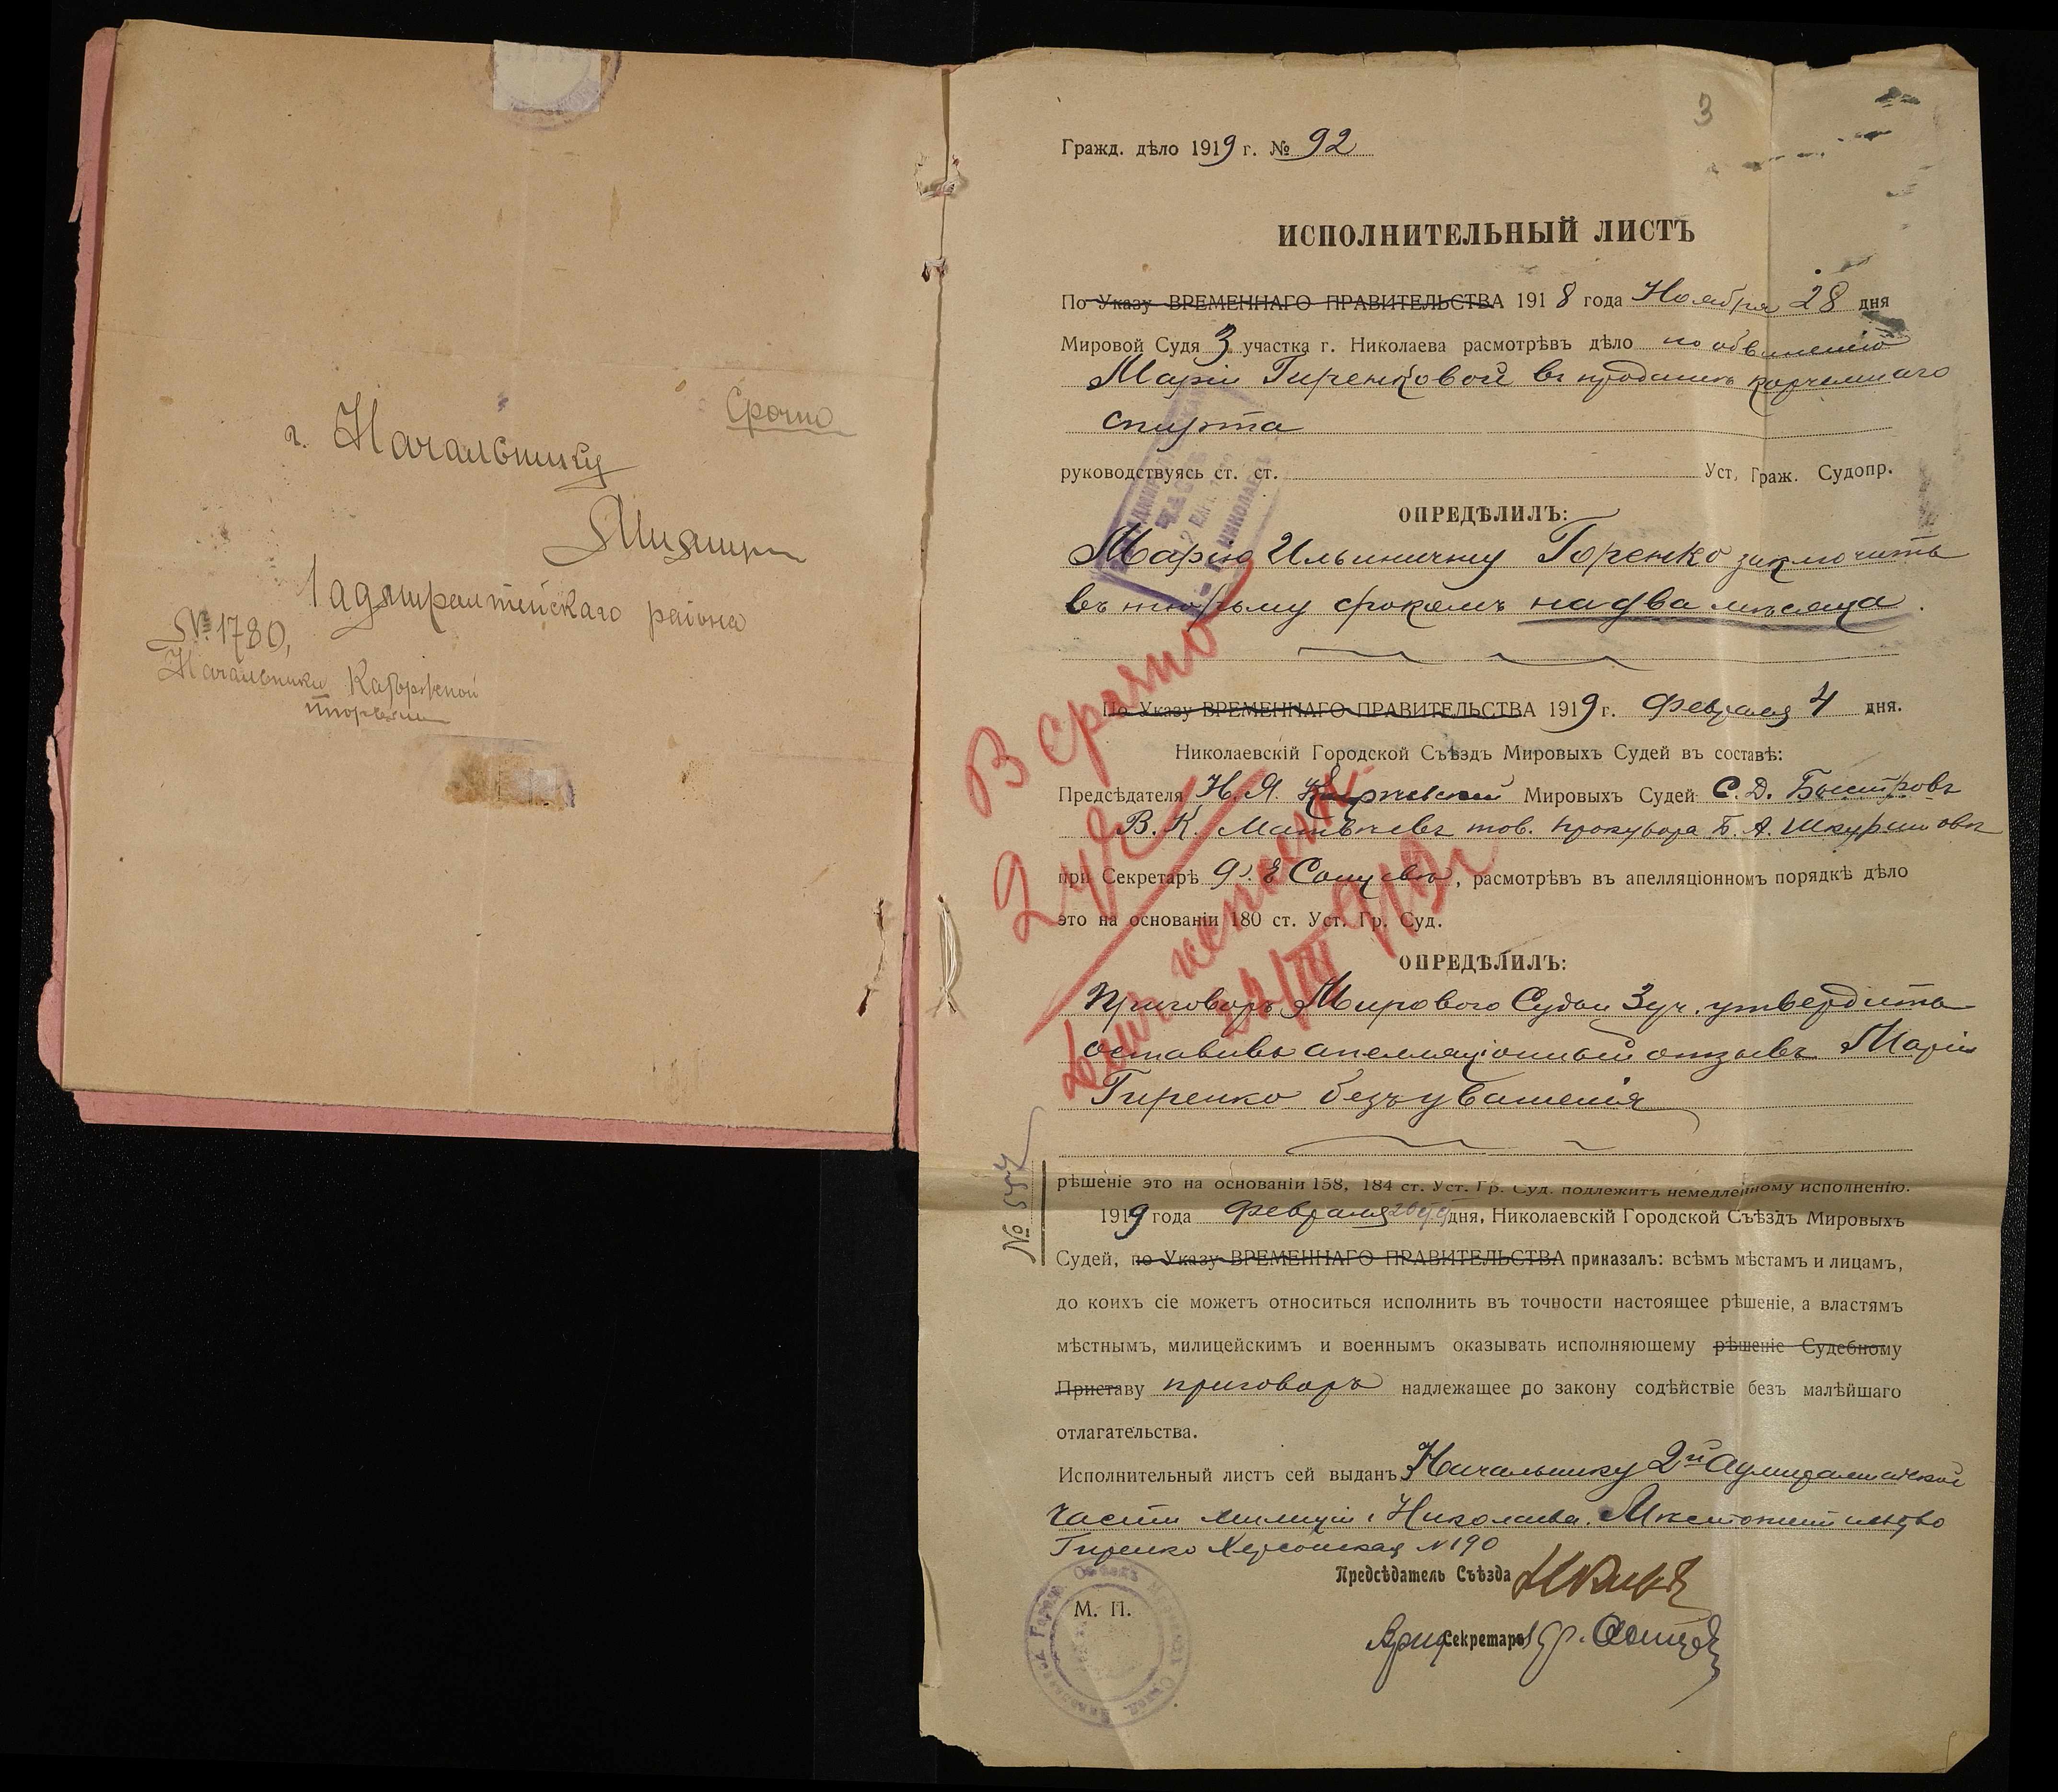 Срочно
г. Начальнику
Милиции
1 адмиралтейскаго района
№ 1780,
Начальнику Каторжной
тюрьмы
3
Гражд. дѣло 1919 г. № 92
ИСПОЛНИТЕЛЬНЫЙ ЛИСТЪ
По Указу ВРЕМЕННАГО ПРАВИТЕЛЬСТВА 1918 года Ноября 28 дня
Мировой Судя 3 участка г. Николаева расмотрѣвъ дѣло по обвиненію
Маріи Гиренковой въ продажѣ корчемнаго
спирта
руководствуясь ст. ст. Уст, Граж. Судопр.
ОПРЕДѢЛИЛЪ:
Марію Ильиничну Горенко заключить
въ тюрьму срокомъ на два мѣсяца.
По Указу ВРЕМЕННАГО ПРАВИТЕЛЬСТВА 1919 г. Февраля 4 дня.
Николаевскій Городской Съѣздъ Мировыхъ Судей въ составѣ:
Предсѣдателя Н. Я. Мировыхъ Судей С. Д. Быстровъ
В. К. Матвѣевъ тов. прокурора Б. А. Шкуратовъ
при Секретарѣ, расмотрѣвъ въ апелляціонномъ порядкѣ дѣло
это на основаніи 180 ст. Уст. Гр. Суд.
ОПРЕДѢЛИЛЪ:
Приговоръ Мирового Судьи 3 уч. утвердить
оставивъ апелляціонный отзывъ Маріи
Гиренко безъ уваженія
рѣшеніе это на основаніи 158, 184 ст. Уст. Гр. Суд. подлежитъ немедленному исполненію.
1919 года Февраля дня, Николаевскій Городской Съѣздъ Мировыхъ
Судей, по Указу ВРЕМЕННАГО ПРАВИТЕЛЬСТВА приказалъ: всѣмъ мѣстамъ и лицамъ,
до коихъ сіе можетъ относиться исполнить въ точности настоящее рѣшеніе, а властямъ
мѣстнымъ, милицейскимъ и военнымъ оказывать исполняющему рѣшеніе Судебному
Приставу приговоръ надлежащее по закону содѣйствіе безъ малѣйшаго
отлагательства.
Исполнительный листъ сей выданъ Начальнику 2й Адмиралтейской
части милиціи г. Николаева. Мѣстожительство
Гиренко Херсонская N 190
Предсѣдатель Съѣзда
М. П.
Секретарь